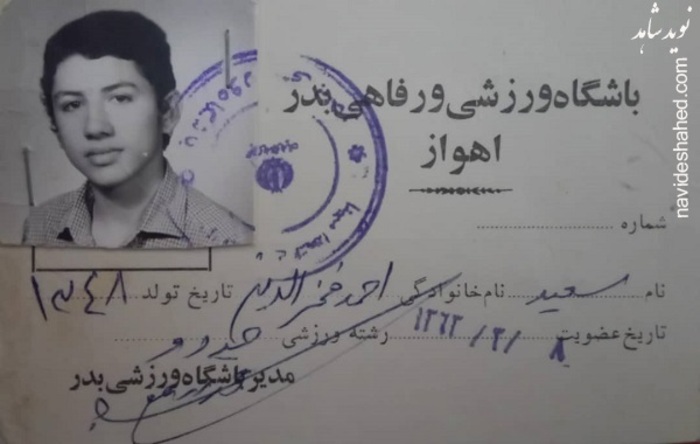 نوید شاهد
navideshahed.com
باشگاه ورزشی و رفاهی بدر
اهواز
شماره
نام سعید نام خانوادگی احمد فخرالدین تاریخ تولد ۱۳۴۸
تاریخ عضویت ۸/۲/۱۳۶۳ رشته ورزشی
مدیر باشگاه ورزشی بدر